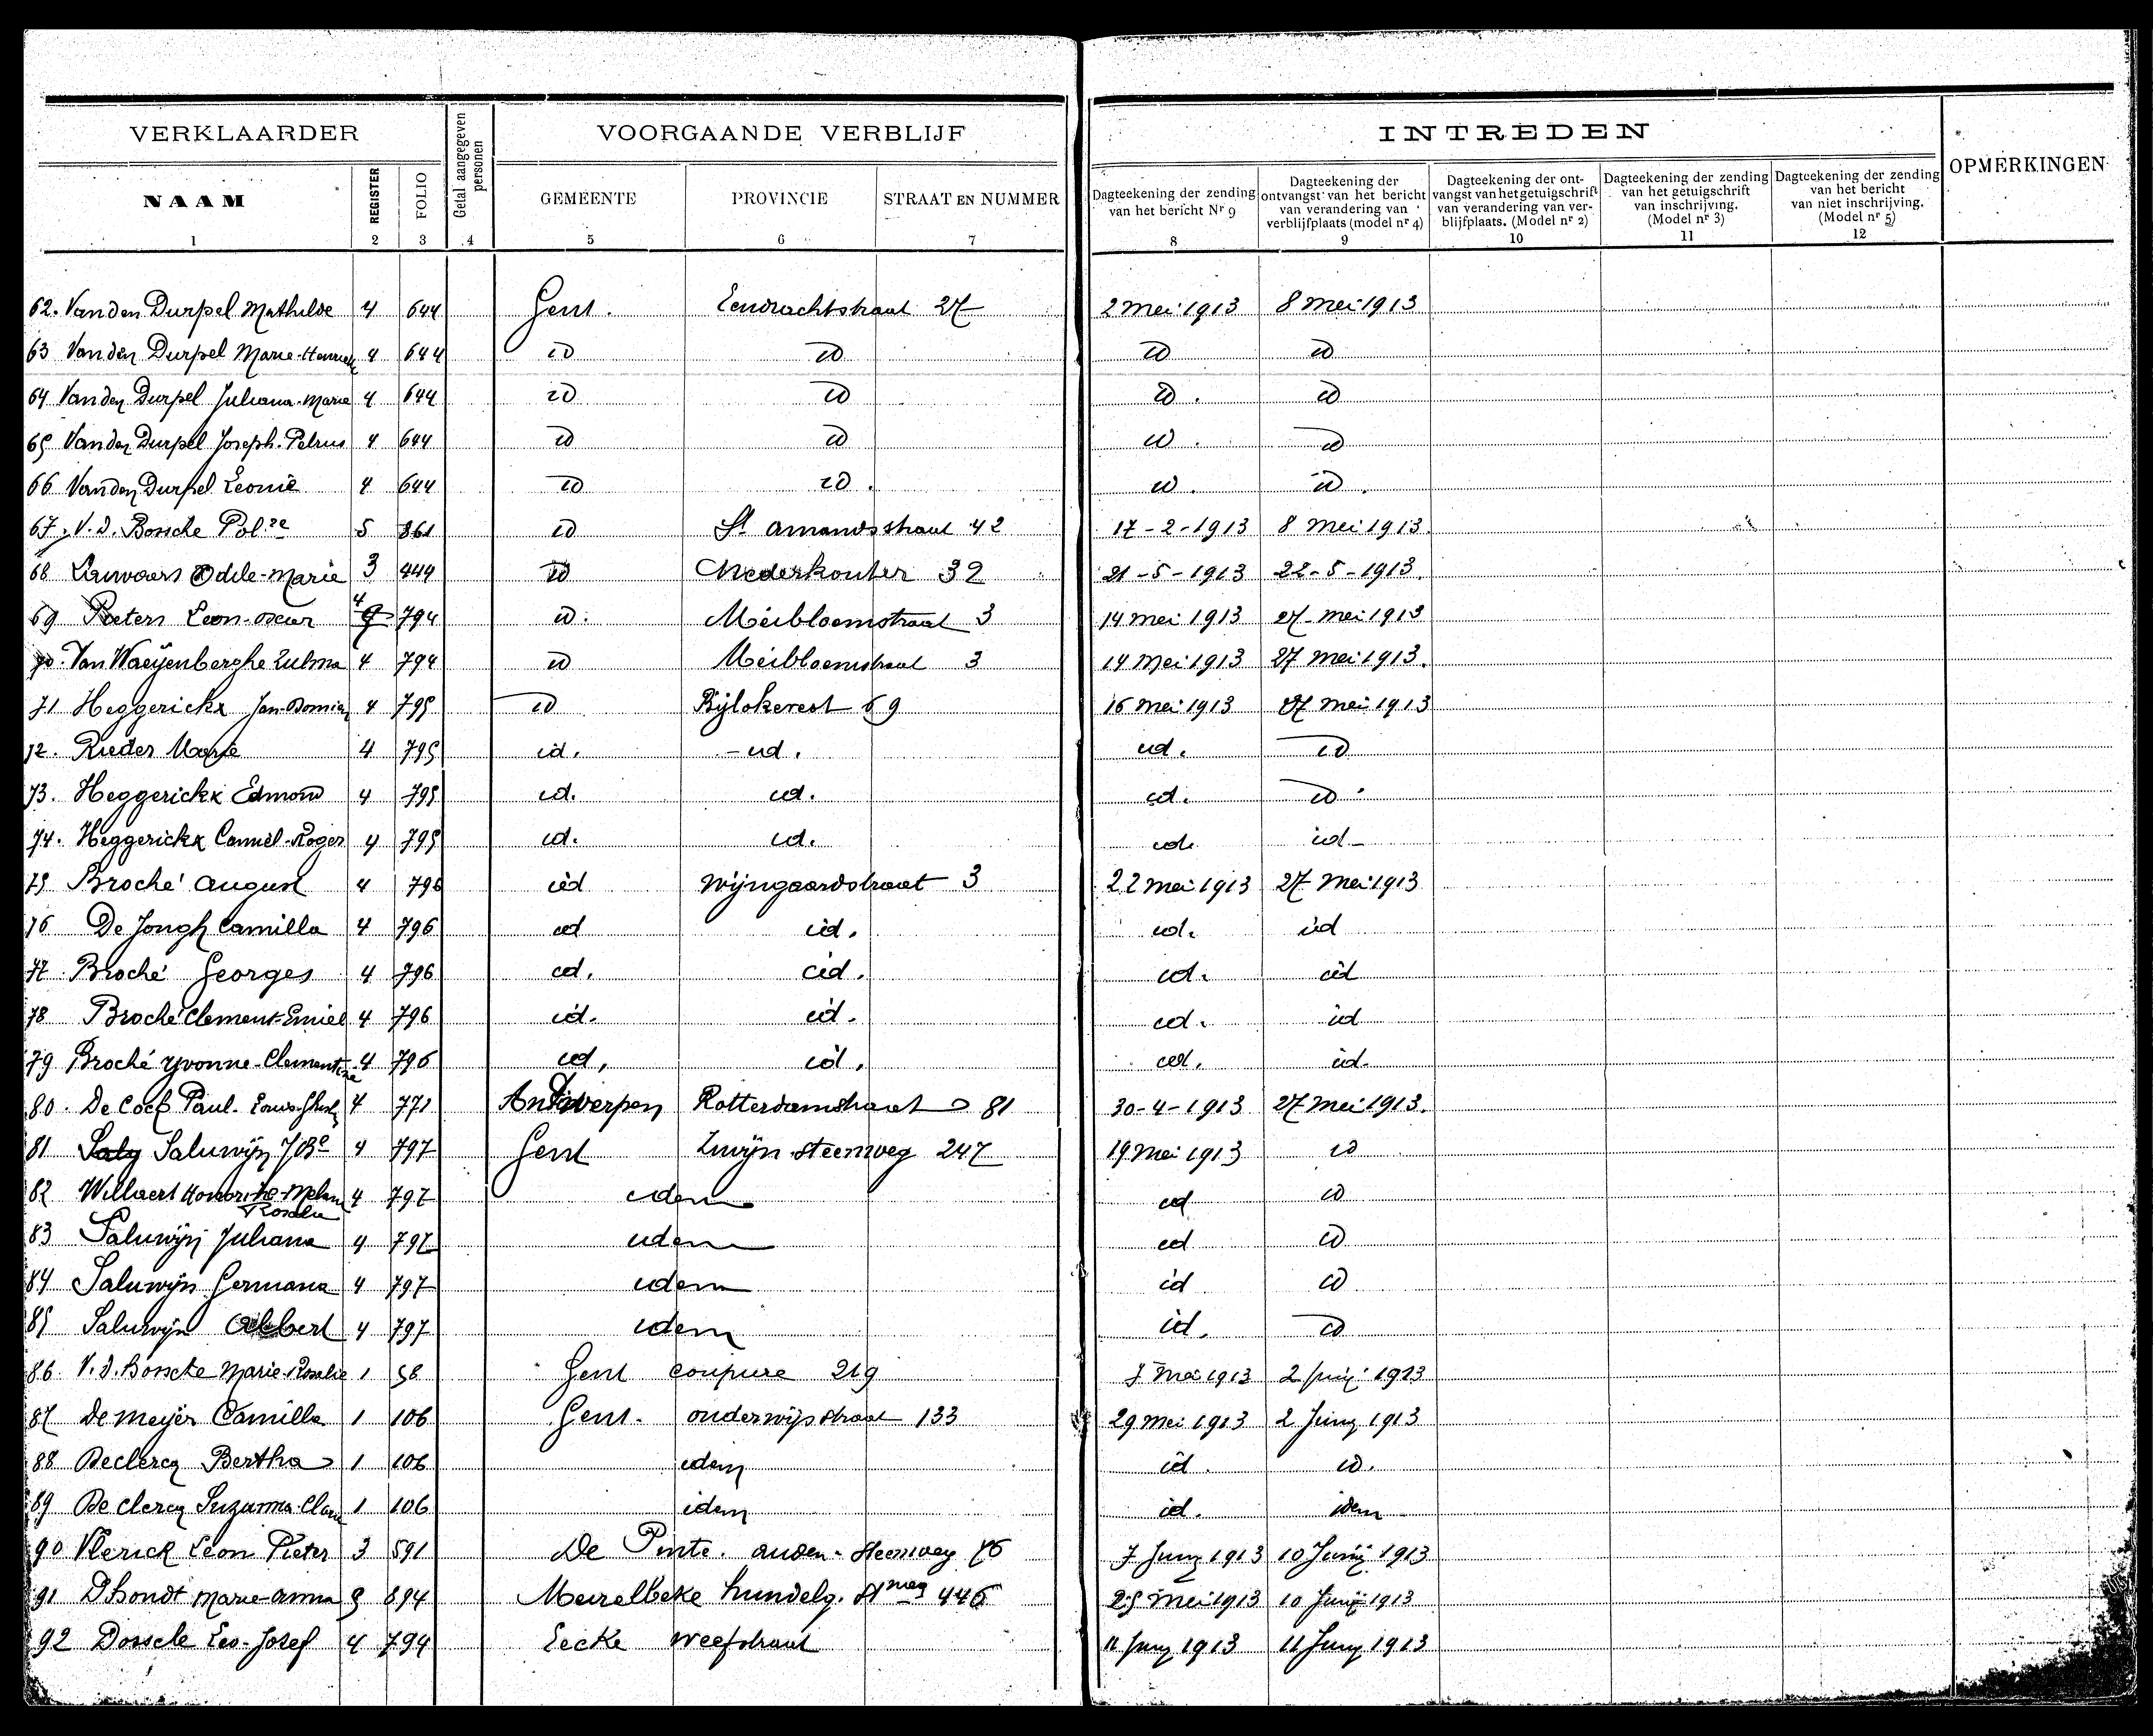 VERKLAARDER
Getal aangegeven personen
VOORGAANDE VERBLIJF
INTREDEN
OPMERKINGEN
NAAM REGISTER FOLIO GEMEENTE PROVINCIE STRAAT EN NUMMER
Dagteekening der zending van het bericht Nr 9
Dagteekening der ontvangst van het bericht van verandering van verblijfplaats (model nr 4)
Dagteekening der ontvangst van het getuigschrift van verandering van verblijfplaats. (Model nr 2)
Dagteekening der zending van het getuigschrift van inschrijving. (Model nr 3)
Dagteekening der zending van het bericht van niet inschrijving. (Model nr 5)
1 2 3 4 5 6 7 8 9 10 11 12
62. Van den Durpel Mathilde 4 644 Gent. Eendrachtstraat 27 2 Mei 1913 8 Mei 1913
63 Van den Durpel Marie- 4 644 id id id id
64 Van den Durpel Juliana-Marie 4 644 id id id. id
65 Van den Durpel Joseph-Petrus 4 644 id id id. id
66 Van den Durpel Leonie 4 644 id id. id. id.
67. V. d. Bossche Pol.ne 5 861 id St Amandsstraat 42 17-2-1913 8 Mei 1913
68 Lauwaers Odile-Marie 3 444 id Nederkouter 32 21-5-1913 22-5-1913.
69 Pieters Leon-Oscar 4 794 id. Meibloemstraat 3 14 Mei 1913 27 Mei 1913
70. Van Waeijenberghe Zulma 4 794 id Meibloemstraat 3 14 Mei 1913 27 Mei 1913.
71 Heggerickx Jan- 4 795 id Bijlokevest 69 16 Mei 1913 27 Mei 1913
72. Rieder Marie 4 795 id. - id. id. id
73. Heggerickx Edmond 4 795 id. id. id. id
74. Heggerickx Camiel-Roger 4 795 id. id. id. id-
75 Broché August 4 796 id Wijngaardstraat 3 22 Mei 1913 27 Mei 1913
76 De Jongh Camilla 4 796 id id. id. id
77 Broché Georges 4 796 id. id. id. id
78 Broché Clement-Emiel 4 796 id. id. id. id
79 Broché Yvonne-Clementine 4 796 id. id. id. id.
80. De Cock Paul- 4 771 Antwerpen Rotterdamstraat 81 30-4-1913 27 Mei 1913.
81 Saluwijn J Bte 4 797 Gent Zwijn.steenweg 247 19 Mei 1913 id
82 Willaert Rosalie 4 797 idem id id
83 Saluwijn Juliana 4 797 idem id id
84 Saluwijn Germana 4 797 idem id id
85 Saluwijn Albert 4 797 idem id. id
86. V. d. Bossche Marie-Rosalie 1 58 Gent Coupure 219 7 Mei 1913 2 Juny 1913
87 De Meyer Camilla 1 106 Gent. Onderwijsstraat 133 29 Mei 1913 2 Juny 1913
88 Declercq Bertha 1 106 idem id. id.
89 De Clercq Suzanna-Clara 1 106 idem id. idem
90 Vlerick Leon Pieter 3 591 De Pinte. Auden. Steenweg 76 7 Juny 1913 10 Junij 1913
91 D'hondt Marie-Anna 894 Meirelbeke Hundelg. Stweg 446 25 Mei 1913 10 Junij 1913
92 Dossche Leo-Josef 4 794 Eecke Weefstraat 11 Juny 1913 11 Juny 1913